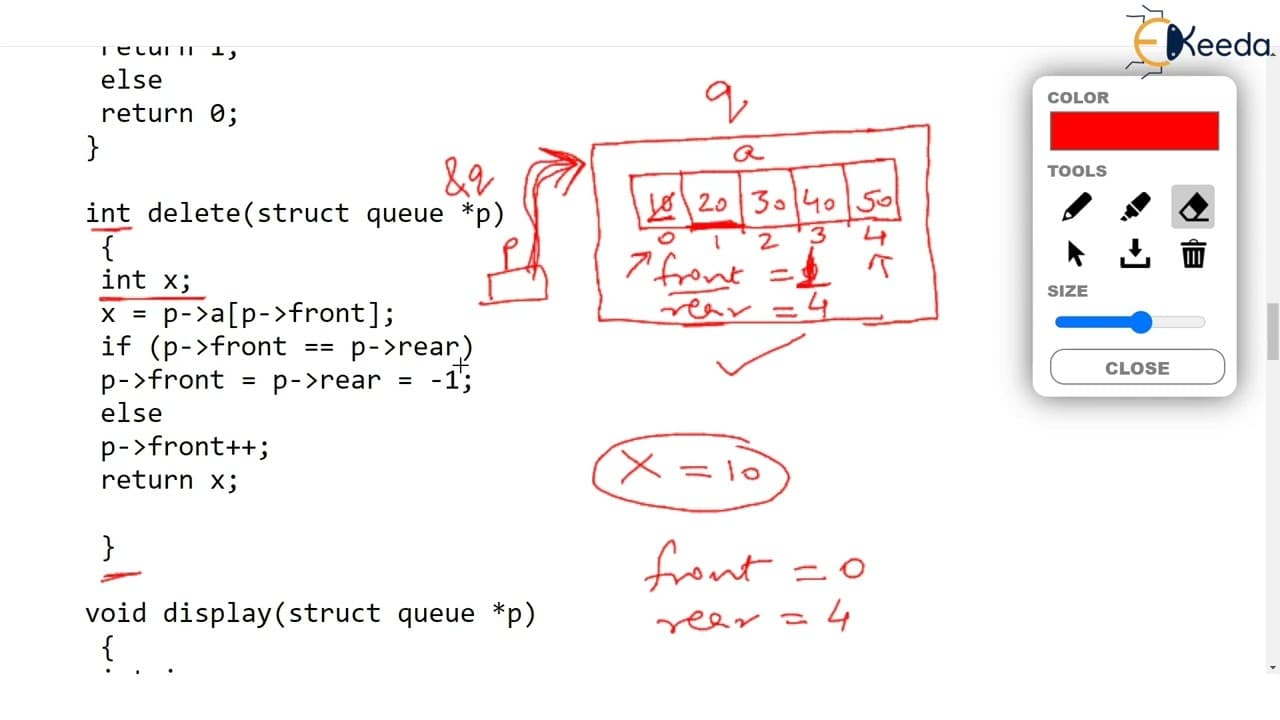 EKeeda
return 1;
else
return 0;
}
int delete(struct queue *p)
{
int x;
x = p->a[p->front];
if (p->front == p->rear)
p->front = p->rear = -1;
else
p->front++;
return x;
}
void display(struct queue *p)
{
&q
p
q
a
10 20 30 40 50
0 1 2 3 4
front = 1
rear = 4
X = 10
front = 0
rear = 4
COLOR
TOOLS
SIZE
CLOSE